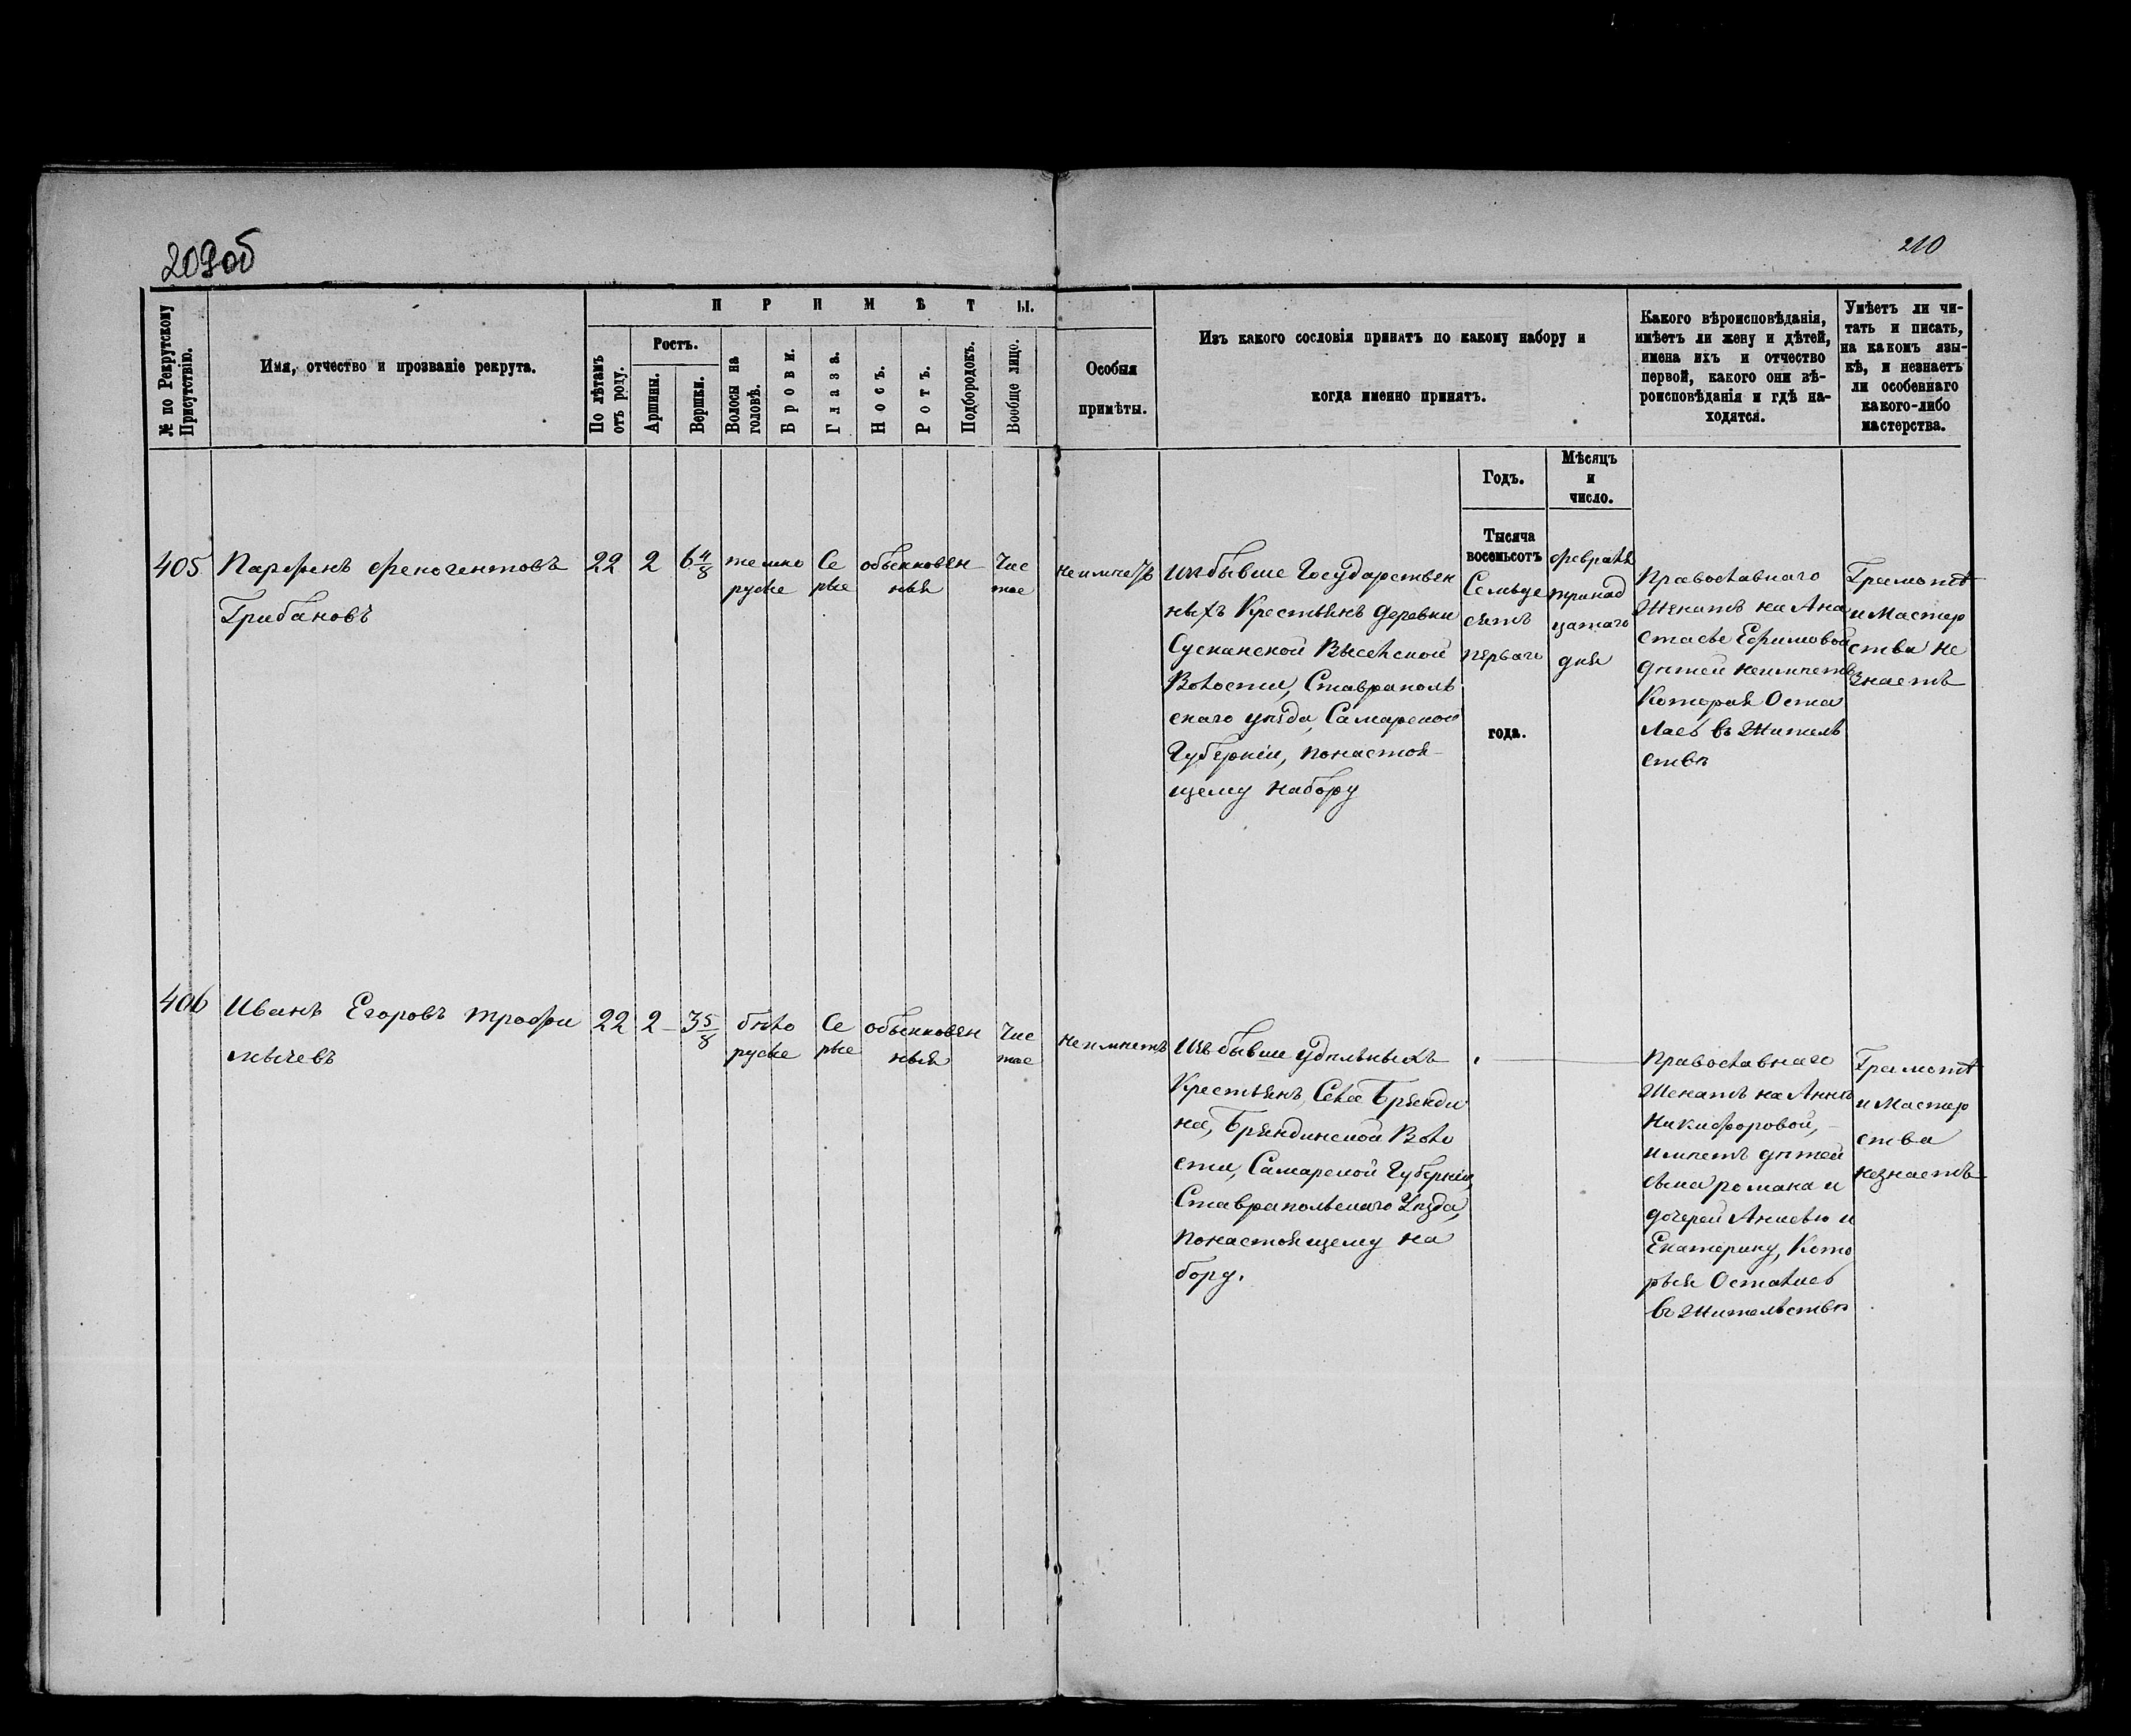 209об
210
№ по Рекрутскому Присутствію.
Имя, отчество и прозваніе рекрута.
ПРИМѢТЫ.
По лѣтамъ отъ роду.
Ростъ.
Аршины.
Вершки.
Волосы на головѣ.
Брови.
Глаза.
Носъ.
Ротъ.
Подбородокъ.
Вообще лицо.
Особыя
примѣты.
Изъ какого сословія принятъ по какому набору и
когда именно принятъ.
Какого вѣроисповѣданія,
имѣетъ ли жену и дѣтей,
имена ихъ и отчество
первой, какого они вѣ-
роисповѣданія и гдѣ на-
ходятся.
Умѣетъ ли чи-
тать и писать,
на какомъ язы-
кѣ, и незнаетъ
ли особеннаго
какого-либо
мастерства.
Годъ.
Мѣсяцъ
и
число.
405
Парфенъ Феногентовъ
Грибановъ
22
2
6 4/8
темно
русые
Се
рые
обыкновен
ныя
Чис
тое
неимѣетъ
Изъ бывше Государствен
ныхъ Крестьянъ деревни
Сусканской Высельской
Волости, Ставрополь
скаго уѣзда, Самарской
Губерніи, понастоя-
щему набору
Тысяча
восемьсотъ
Семьде
сятъ
перваго
года.
февраля
тринад
цатаго
дня
Православнаго
Женатъ на Ана
стасье Ефимовой
дѣтей неимѣетъ
Которая Оста
лась въ Житель
ствѣ
Грамотѣ
и Мастер
ства не
знаетъ
406
Иванъ Егоровъ Трофи
мычевъ
22
2
3 5/8
бѣло
русые
Се
рые
обыкновен
ныя
Чис
тое
неимѣетъ
Изъ бывше удѣльныхъ
Крестьянъ, Села Бряндн
на, Бряндинской Воло
сти, Самарской Губерніи,
Ставропольскаго Уѣзда,
понастоящему на
бору.
Православнаго
Женатъ на Аннѣ
Никифоровой,
имѣетъ дѣтей
сына романа и
дочерей Анисью и
Екатерину, Кото
рыя Остались
въ Жительствѣ
Грамотѣ
и Мастер
ства
незнаетъ